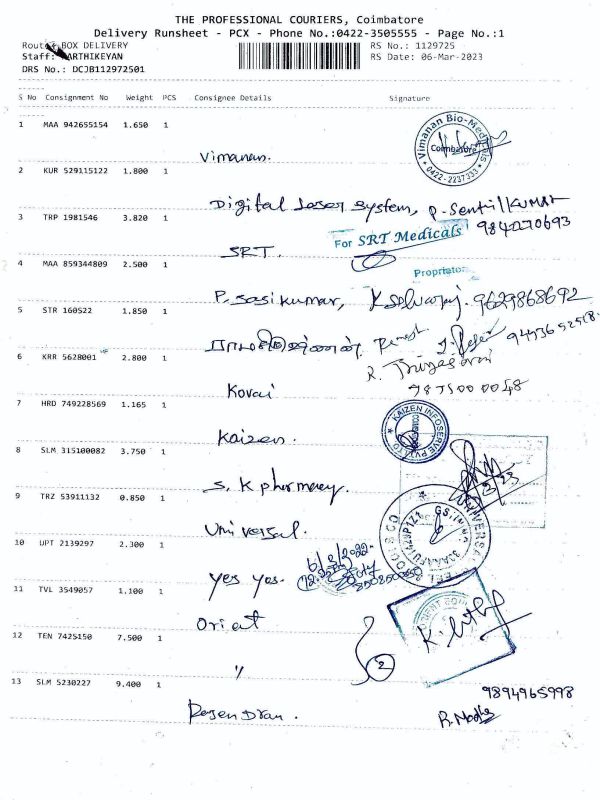 THE PROFESSIONAL COURIERS, Coimbatore
Delivery Runsheet - PCX - Phone No.:0422-3505555 - Page No.:1
Route: BOX DELIVERY
RS No.: 1129725
Staff: KARTHIKEYAN
RS Date: 06-Mar-2023
DRS No.: DCJB112972501
S No Consignment No Weight PCS Consignee Details Signature
1 MAA 942655154 1.650 1
Vimanan.
Vimanan Bio-Medicals
Coimbatore
0422-2237333
2 KUR 529115122 1.800 1
Digital Laser System, P. Sentil KUMAR
9842270693
3 TRP 1981546 3.820 1
SRT.
For SRT Medicals
Proprietor
4 MAA 859344809 2.500 1
P. Sasikumar, K Selvaraj. 9629868692
5 STR 160522 1.850 1
6 KRR 5628001 2.800 1
Kovai
7 HRD 749228569 1.165 1
Kaizen.
KAIZEN INFOSERVE PVT LTD
8 SLM 315100082 3.750 1
S. K pharmacy.
9 TRZ 53911132 0.850 1
Universal.
10 UPT 2139297 2.300 1
yes yes.
6/3/2022
11 TVL 3549057 1.100 1
Oriat
12 TEN 7425150 7.500 1
"
2
13 SLM 5230227 9.400 1
Rajendran.
9894965998